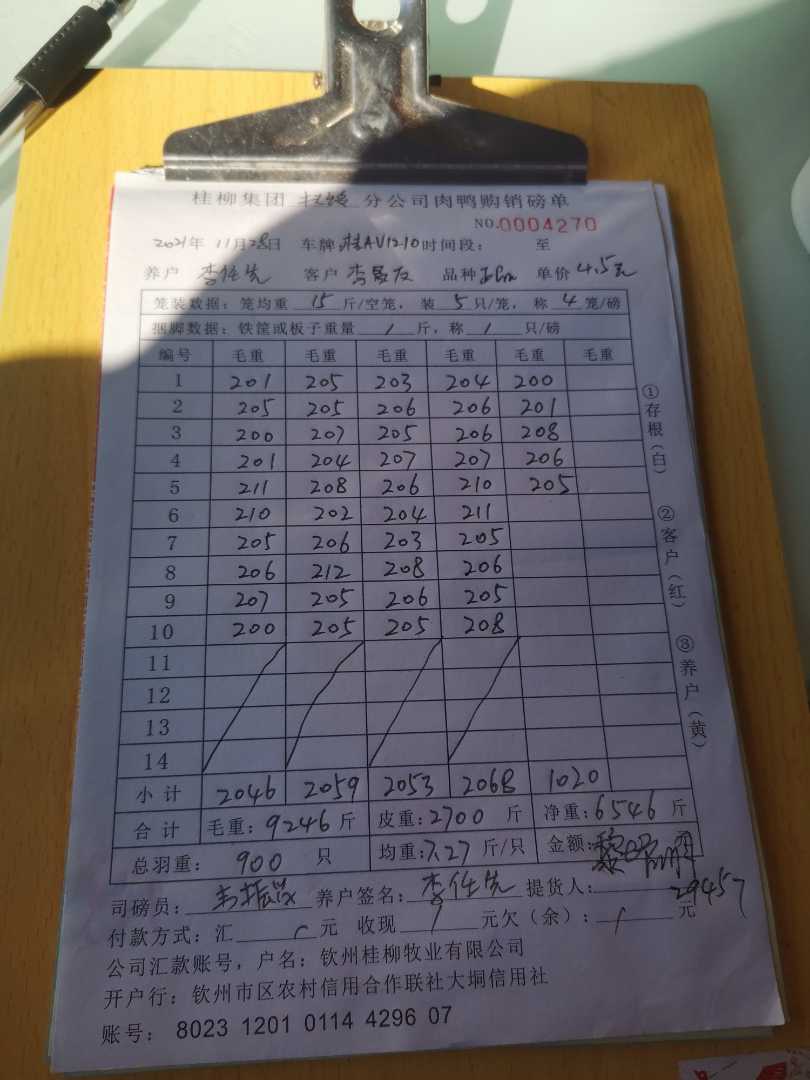 桂柳集团 分公司肉鸭购销磅单
NO.0004270
2021年 11月28日 车牌 桂AV1210 时间段： 至
养户 李任先 客户 品种 单价 4.5元
笼装数据：笼均重 15 斤/空笼，装 5 只/笼，称 4 笼/磅
捆脚数据：铁筐或板子重量 / 斤，称 / 只/磅
编号 毛重 毛重 毛重 毛重 毛重 毛重
1 201 205 203 204 200
2 205 205 206 206 201
3 200 207 205 206 208
4 201 204 207 207 206
5 211 208 206 210 205
6 210 202 204 211
7 205 206 203 205
8 206 212 208 206
9 207 205 206 205
10 200 205 205 208
11
12
13
14
小计 2046 2059 2053 2068 1020
合计 毛重：9246斤 皮重：2700 斤 净重：6546 斤
总羽重： 900 只 均重：7.27 斤/只 金额： 元
司磅员： 养户签名：李任先 提货人： 29457
付款方式：汇 元 收现 / 元欠（余）： / 元
公司汇款账号，户名：钦州桂柳牧业有限公司
开户行：钦州市区农村信用合作联社大垌信用社
账号：8023 1201 0114 4296 07
①存根（白）
②客户（红）
③养户（黄）